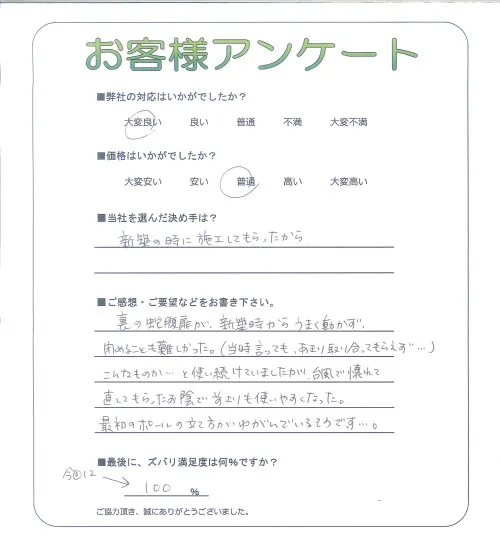 お客様アンケート
■弊社の対応はいかがでしたか？
大変良い 良い 普通 不満 大変不満
■価格はいかがでしたか？
大変安い 安い 普通 高い 大変高い
■当社を選んだ決め手は？
新築の時に施工してもらったから
■ご感想・ご要望などをお書き下さい。
裏の蛇腹扉が、新築時からうまく動かず、
閉めることも難しかった。(当時言っても、あまり取り合ってもらえず…)
こんなものか…と使い続けていましたが、台風で壊れて
直してもらったお陰で前よりも使いやすくなった。
最初のポールの立て方がゆがんでいるそうです…。
■最後に、ズバリ満足度は何%ですか？
今回は
100 %
ご協力頂き、誠にありがとうございました。